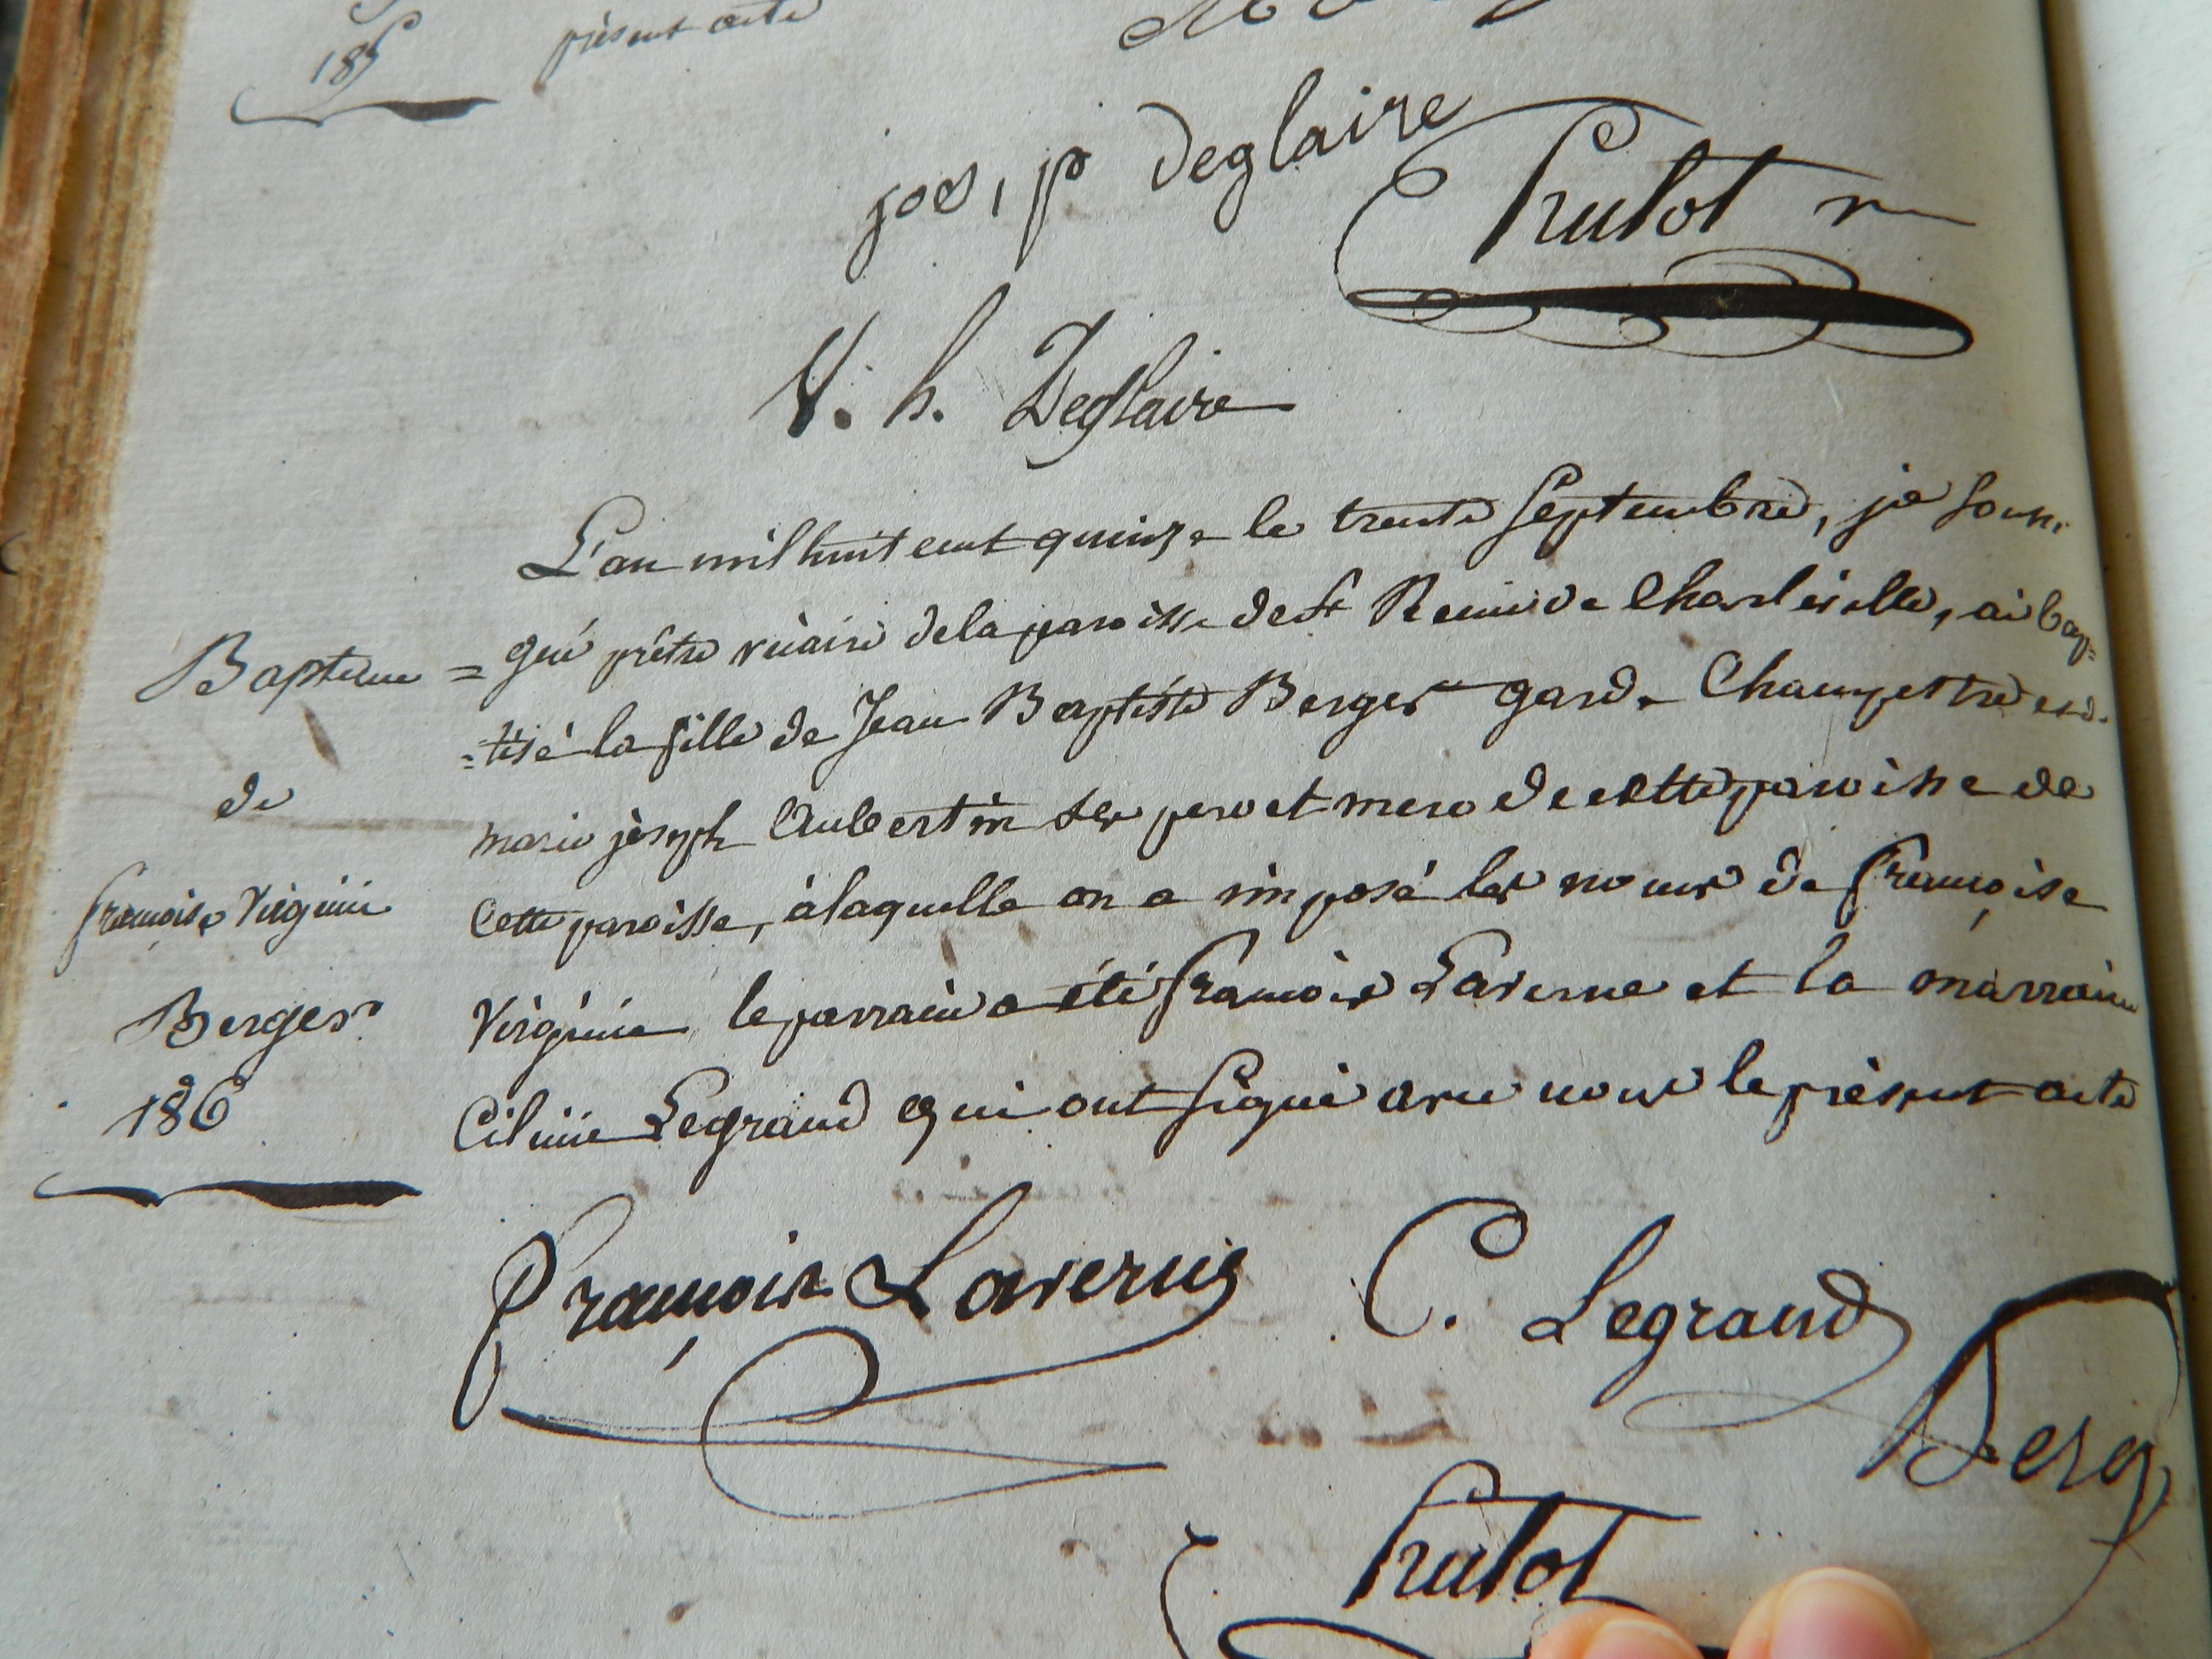 185
présent acte
jos, p deglaire
hulot v
V. h. Deglaire
L'an mil huit cent quinze le trente Septembre, je sous-
Baptême = gné prêtre vicaire de la paroisse de St Remi de Charleville, ai bap=
=tisé la fille de Jean Baptiste Berger garde Champetre et d.
de
marie joseph Aubertin ses pere et mere de cette paroisse de
françoise Virginie
Cette paroisse, à laquelle on a imposé les noms de françoise
Berger
Virginie le parrain a été françois Laverne et la marraine
186
Celinie Legrand qui ont signé avec nous le présent acte
françois Laverne
C. Legrand
Berg
hulot